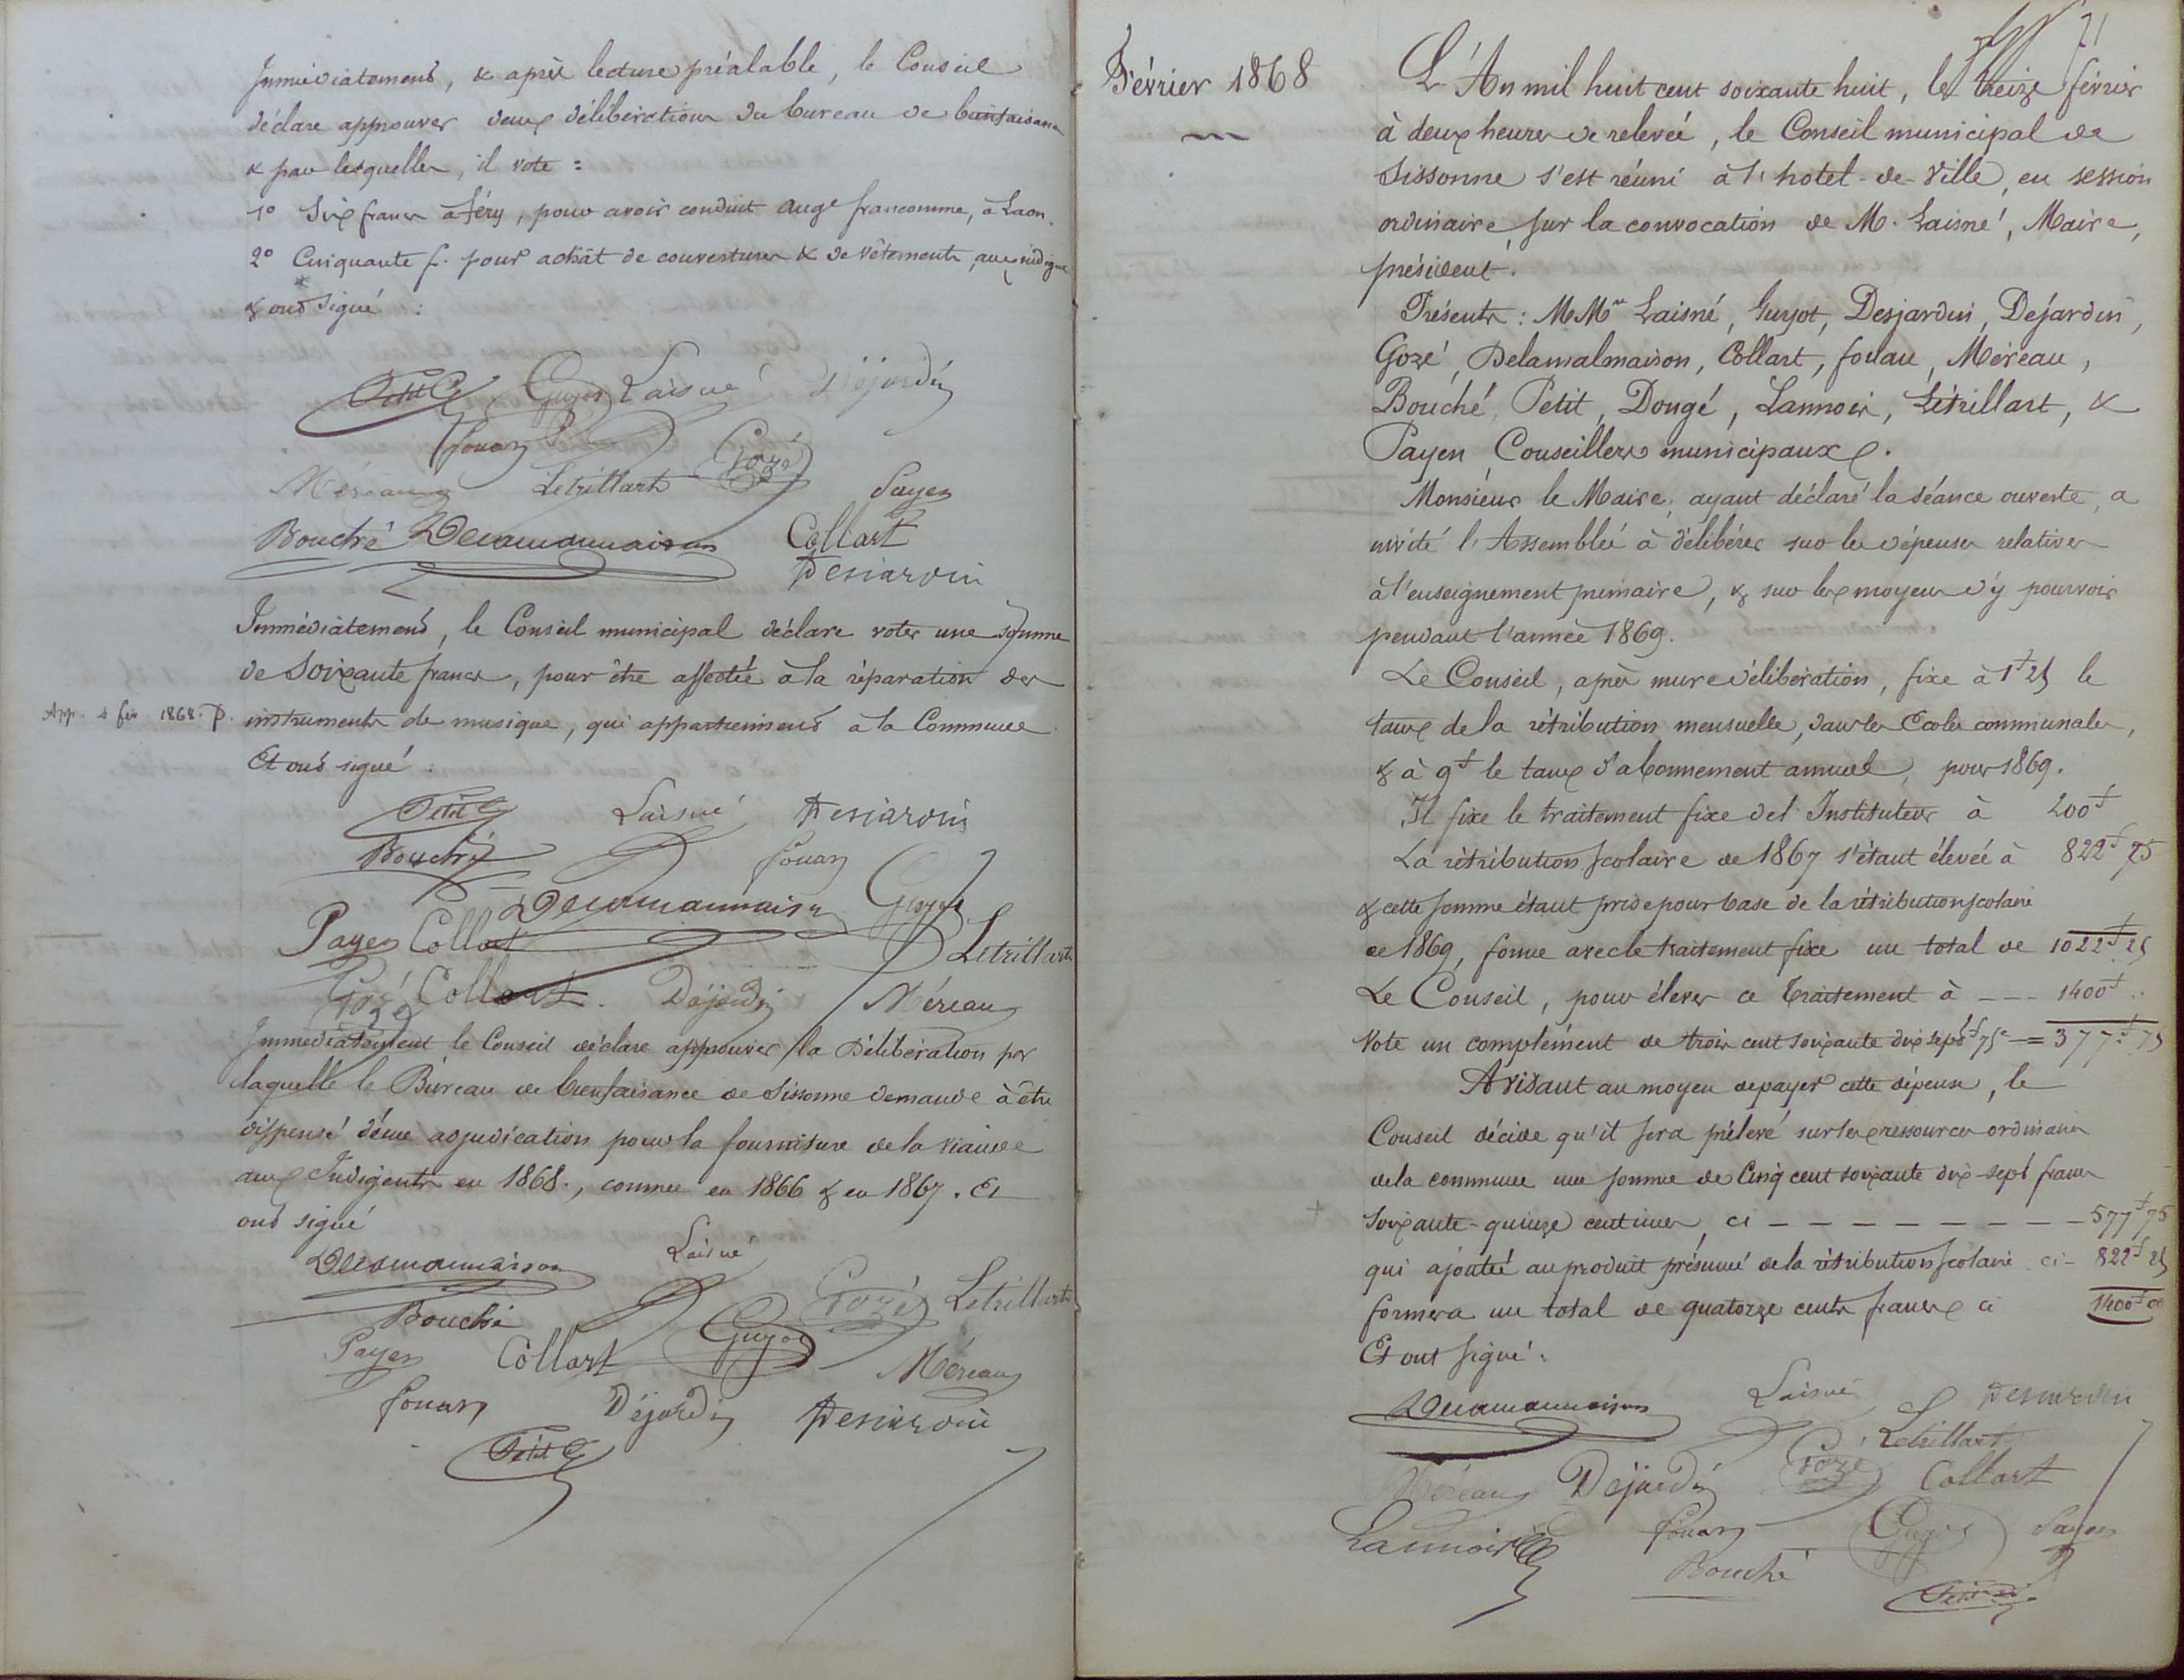 Immédiatement, & après lecture préalable, le Conseil
déclare approuver deux délibérations du bureau de bienfaisance
& par lesquelles, il vote :
1° Six francs à féry, pour avoir conduit Auge francomme, à Laon.
2° Cinquante f. pour achât de couvertures & de vêtements, aux indigents
& ont Signé :
Petit Guyot Laisné Déjardin
fouan
Gozé
Méreau Letrillart Payen
Bouché Delamalmaison Collart
Desjardin
Immédiatement, le Conseil municipal déclare voter une somme
de Soixante francs, pour être affectée à la réparation des
App. 4 fév. 1868. P.
instruments de musique, qui appartiennent à la Commune.
Et ont signé :
Petit Laisné Desjardin
Bouché fouan
Delamalmaison Guyot
Payen Collart Letrillart
Gozé Collart. Déjardin Méreau
Immédiatement le Conseil déclare approuver la Délibération par
laquelle le Bureau de bienfaisance de Sissonne demande à être
dispensé d'une adjudication pour la fourniture de la viande
aux Indigents en 1868., comme en 1866 & en 1867. Et
ont signé
Delamalmaison Laisné
Bouché Gozé Letrillart
Payen Collart Guyot Méreau
fouan Déjardin Desjardin
Petit
71
Février 1868
L'An mil huit cent soixante huit, le treize février
à deux heures de relevée, le Conseil municipal de
Sissonne s'est réuni à l'hotel-de-Ville, en session
ordinaire, sur la convocation de M. Laisné, Maire,
président.
Présents : MMrs Laisné, Guyot, Desjardin, Déjardin,
Gozé, Delamalmaison, Collart, fouan, Méreau,
Bouché, Petit, Dougé, Lannois, Létrillart, &
Payen, Conseillers municipaux.
Monsieur le Maire, ayant déclaré la séance ouverte, a
invité l'Assemblée à délibérer sur les dépenses relatives
à l'enseignement primaire, & sur les moyens d'y pourvoir
pendant l'année 1869.
Le Conseil, après mure délibération, fixe à 1f 25 le
taux de la rétribution mensuelle, dans les Ecoles communales,
& à 9f le taux d'abonnement annuel, pour 1869.
Il fixe le traitement fixe de l'Instituteur à 200f
La rétribution scolaire de 1867 s'étant élevée à 822f 25
& cette somme étant prise pour base de la rétribution scolaire
de 1869, forme avec le traitement fixe un total de 1022f 25
Le Conseil, pour élever ce Traitement à --- 1400f..
Vote un complément de trois cent soixante dix sept f 75c = 377f 75
Avisant au moyen de payer cette dépense, le
Conseil décide qu'il sera prélevé sur les ressources ordinaires
de la commune une somme de Cinq cent soixante dix-sept francs
Soixante-quinze centimes, ci - - - - - - - - 577f 75
qui ajoutée au produit présumé de la rétribution scolaire ci- 822f 25
formera un total de quatorze cents francs ci 1400f 00
Et ont signé :
Delamalmaison Laisné Desjardin
Letrillart
Méreau Déjardin Gozé Collart
Lannois fouan Guyot Payen
Bouché
Petit